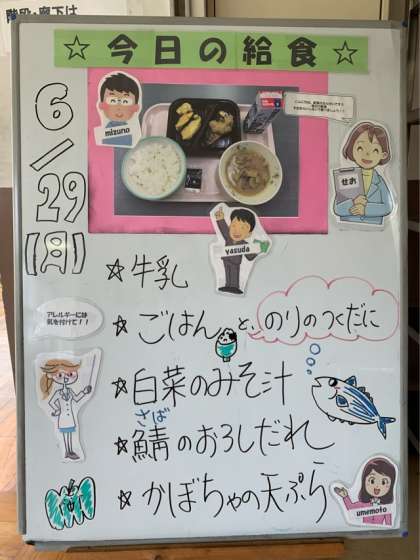 階段・廊下は
☆今日の給食☆
mizuno
せお
yasuda
6/29(月)
☆牛乳
アレルギーには
気を付けて!!
☆ごはんと、のりのつくだに
☆白菜のみそ汁
さば
☆鯖のおろしだれ
☆かぼちゃの天ぷら
umemoto